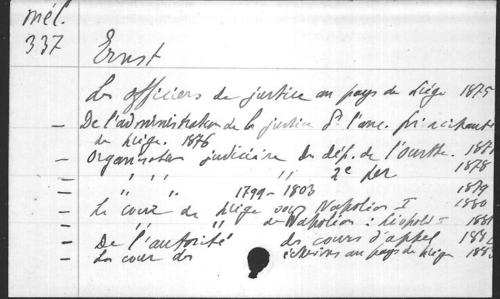 mél.
337
Ernst
Les officiers de justice au pays de Liége 1875
— De l'administration de la justice ds l'anc. principauté
de Liége. 1876
— Organisation judiciaire du dép. de l'Ourthe. 1877
— " " " 2e per 1878
— " " 1799-1803 1879
— La cour de Liége sous Napoléon I 1880
— " " de Napoléon à Léopold I 1881
— De l'autorité des cours d'appel 188
— La cour des échevins au pays de Liége 188